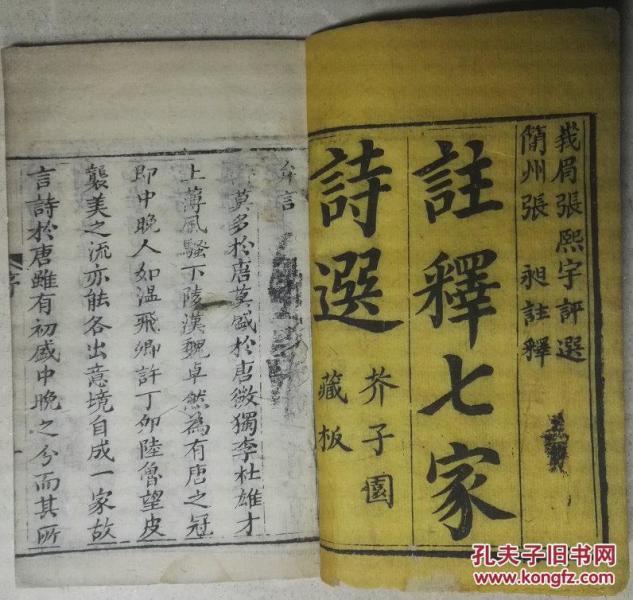 我眉張熙宇評選
簡州張昶註釋
註釋七家
詩選
芥子園
藏板
弁言
莫多於唐莫盛於唐微獨李杜雄才
上薄風騷下陵漢魏卓然為有唐之冠
即中晚人如温飛卿許丁卯陸魯望皮
襲美之流亦能各出意境自成一家故
言詩於唐雖有初盛中晚之分而其所
序
孔夫子旧书网
www.kongfz.com